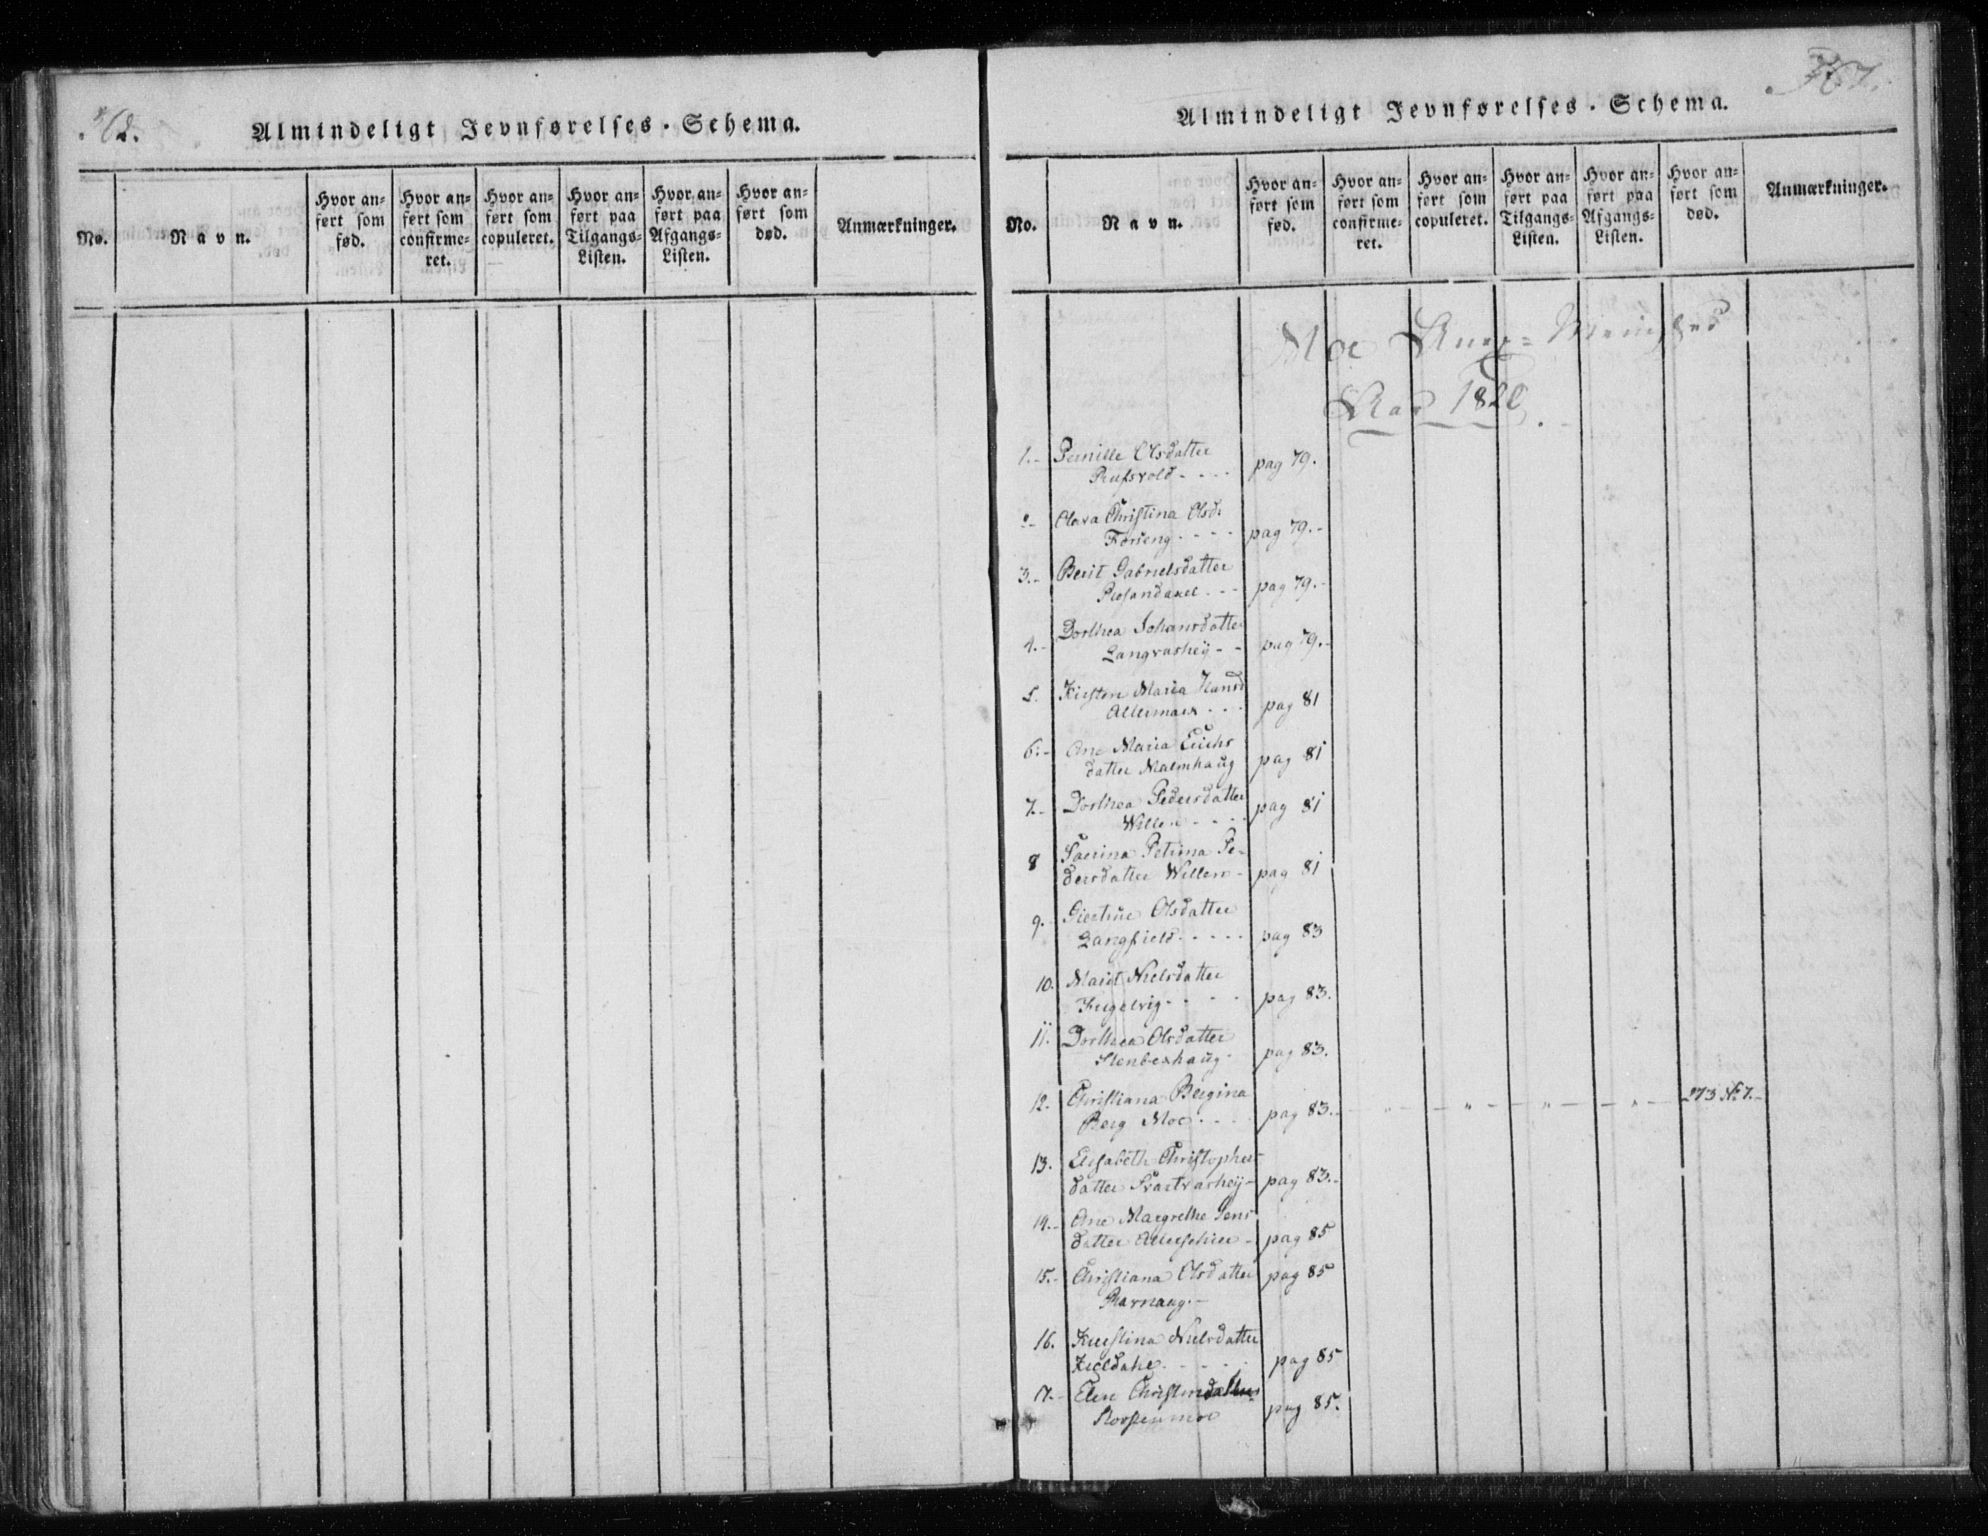 Almindeligt Jevnførelses-Schema.
No.
Navn.
Hvor anført som fød.
Hvor anført som confirmeret.
Hvor anført som copuleret.
Hvor anført paa Tilgangs-Listen.
Hvor anført paa Afgangs-Listen.
Hvor anført som død.
Anmærkninger.
367.
Almindeligt Jevnførelses-Schema.
No.
Navn.
Hvor anført som fød.
Hvor anført som confirmeret.
Hvor anført som copuleret.
Hvor anført paa Tilgangs-Listen.
Hvor anført paa Afgangs-Listen.
Hvor anført som død.
Anmærkninger.
Moe Annex-Menighed
Aar 1820.
1.- Pernille Olsdatter
Rufsvold - - - - pag 79.
2.- Olava Christina Olsd:
Forseng - - - - pag 79.-
3.- Berit Gabrielsdatter
- - - pag 79.-
4.- Dorthea Johansdatter
Langvashey - - pag 79.-
5. Kirsten Maria Hansd
Altermark - - - pag 81
6.- Ane Maria Erichs
datter Malmhaug pag 81
7.- Dorthea Pedersdatter
Willen - - - - pag 81
8 Serina Petrina Pe-
dersdatter Willen - pag 81
9. Giertrue Olsdatter
Langfield - - - - - pag 83
10. Marit Nielsdatter
Fugelvig - - - - pag 83.
11. Dorthea Olsdatter
Stenbekhaug - pag 83.
12. Christiana Bergina
Berg Moe - - - pag 83.- " - " - " - " - 273 No 7.-
13. Elisabeth Christophers
datter Svartvashey - pag 83.-
14.- Ane Margrethe Jens
datter - pag 85
15.- Christiana Olsdatter pag 85
Ravnaag.-
16. Kirstina Nielsdatter
Kieldahl - - - - - pag 85
17.- Elen Christensdatter
Storstenmoe pag 85.